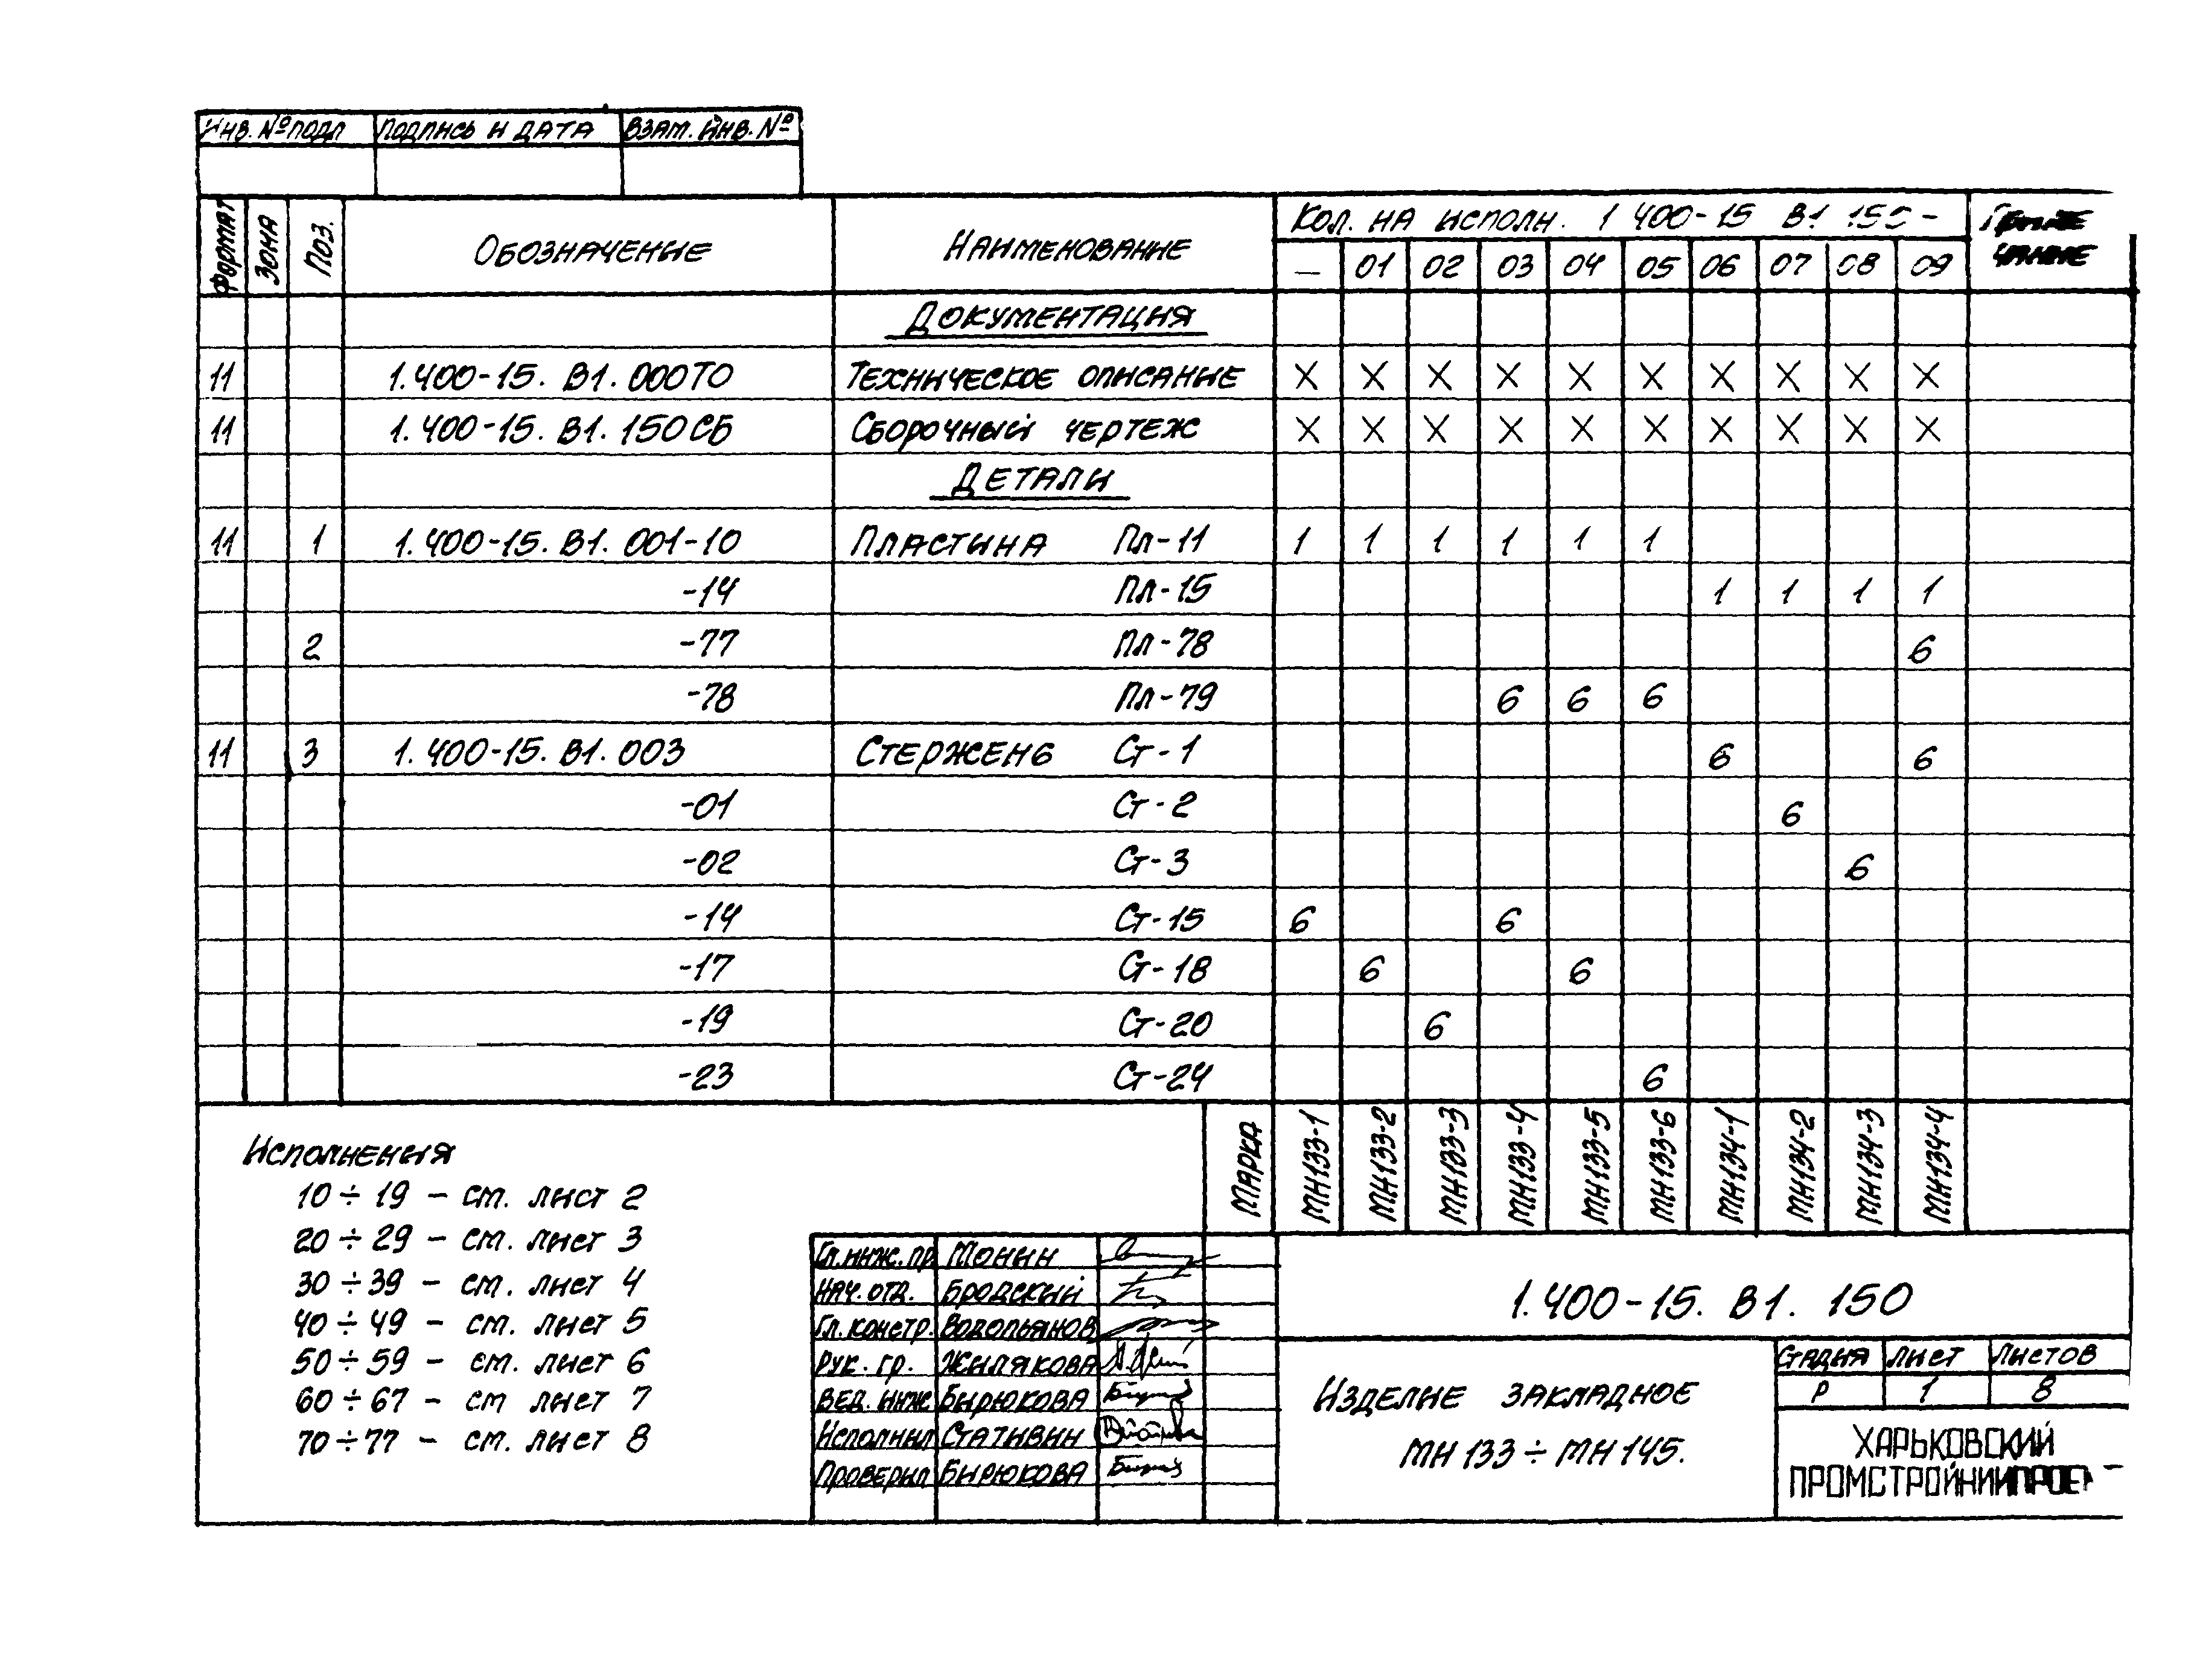 Инв. № подл Подпись и дата Взам. инв. №
Формат Зона Поз. Обозначение Наименование Кол. на исполн. 1 400-15 В1 150- Примечание
— 01 02 03 04 05 06 07 08 09
Документация
11 1.400-15. В1. 000ТО Техническое описание X X X X X X X X X X
11 1.400-15. В1. 150СБ Сборочный чертеж X X X X X X X X X X
Детали
11 1 1.400-15. В1. 001-10 Пластина Пл-11 1 1 1 1 1 1
-14 Пл-15 1 1 1 1
2 -77 Пл-78 6
-78 Пл-79 6 6 6
11 3 1.400-15. В1. 003 Стержень Ст-1 6 6
-01 Ст-2 6
-02 Ст-3 6
-14 Ст-15 6 6
-17 Ст-18 6 6
-19 Ст-20 6
-23 Ст-24 6
Марка МН133-1 МН133-2 МН133-3 МН133-4 МН133-5 МН133-6 МН134-1 МН134-2 МН134-3 МН134-4
Исполнения
10÷19 - см. лист 2
20÷29 - см. лист 3
30÷39 - см. лист 4
40÷49 - см. лист 5
50÷59 - см. лист 6
60÷67 - см лист 7
70÷77 - см. лист 8
Гл.инж.пр. Монин
Нач. отд. Бродский
Гл. констр. Водопьянов
Рук. гр. Жилякова
Вед. инж Бирюкова
Исполнил Стативин
Проверил Бирюкова
1.400-15. В1. 150
Изделие закладное
МН 133 ÷ МН 145.
Стадия Лист Листов
Р 1 8
ХАРЬКОВСКИЙ
ПРОМСТРОЙНИИПРОЕ